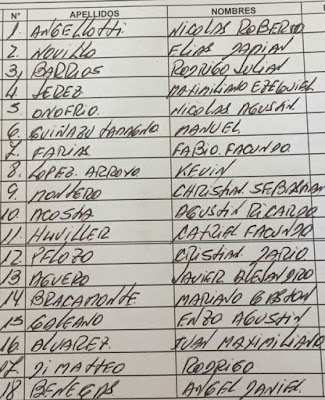 N° APELLIDOS NOMBRES
1. ANGELLOTTI NICOLAS ROBERTO
2. NOVILLO ELIAS DAMIAN
3. BARRIOS RODRIGO JULIAN
4. JEREZ MAXIMILIANO EZEQUIEL
5 ONOFRIO NICOLAS AGUSTIN
6. GUIÑAZU TADAGNO MANUEL
7. FARIAS FABIO FACUNDO
8. LOPEZ ARROYO KEVIN
9. MONTERO CHRISTIAN SEBASTIAN
10. ACOSTA AGUSTIN RICARDO
11 HUVILLER CATRIEL FACUNDO
12 PELOZO CRISTIAN DARIO
13 AGUERO JAVIER ALEJANDRO
14 BRACAMONTE MARIANO GASTON
15 GALEANO ENZO AGUSTIN
16 ALVAREZ JUAN MAXIMILIANO
17. DI MATTEO RODRIGO
18 BENEGAS ANGEL DANIEL